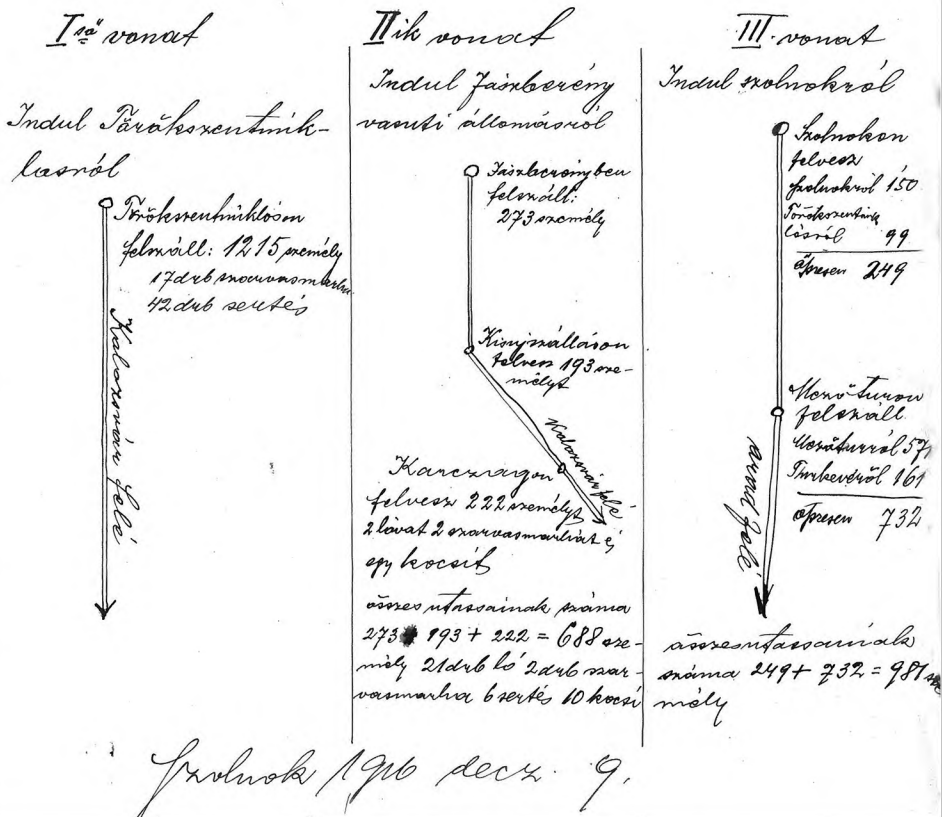 Iső vonat
Indul Törökszentmik-
lósról
Törökszentmiklóson
felszáll: 1215 személy
17 drb szarvasmarha
42 drb sertés
Kolozsvár felé
IIik vonat
Indul Jászberény
vasuti állomásról
Jászberényben
felszáll:
273 személy
Kisujszálláson
felvesz 193 sze-
mélyt
Kolozsvár felé
Karczagon
felvesz 222 személyt
2 lovat 2 szarvasmarhát és
egy kocsit
összes utassainak száma
273 + 193 + 222 = 688 sze-
mély 21 drb ló 2 drb szar-
vasmarha 6 sertés 10 kocsi
III. vonat
Indul szolnokról
Szolnokon
felvesz
szolnokról 150
Törökszentmik
lósról 99
összesen 249
Mezőturon
felszáll
Mezőturról 571
Turkevéről 161
összesen 732
arad felé
összes utassainak
száma 249 + 732 = 981 sze
mély
Szolnok 1916 decz. 9.